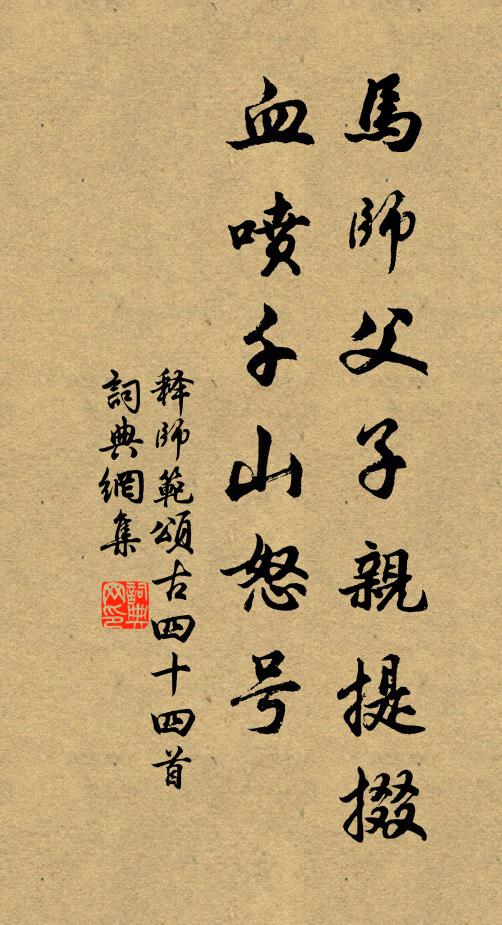 馬師父子親提掇
血噴千山怒号
释師範頌古四十四首
詞典網集
詞典网印